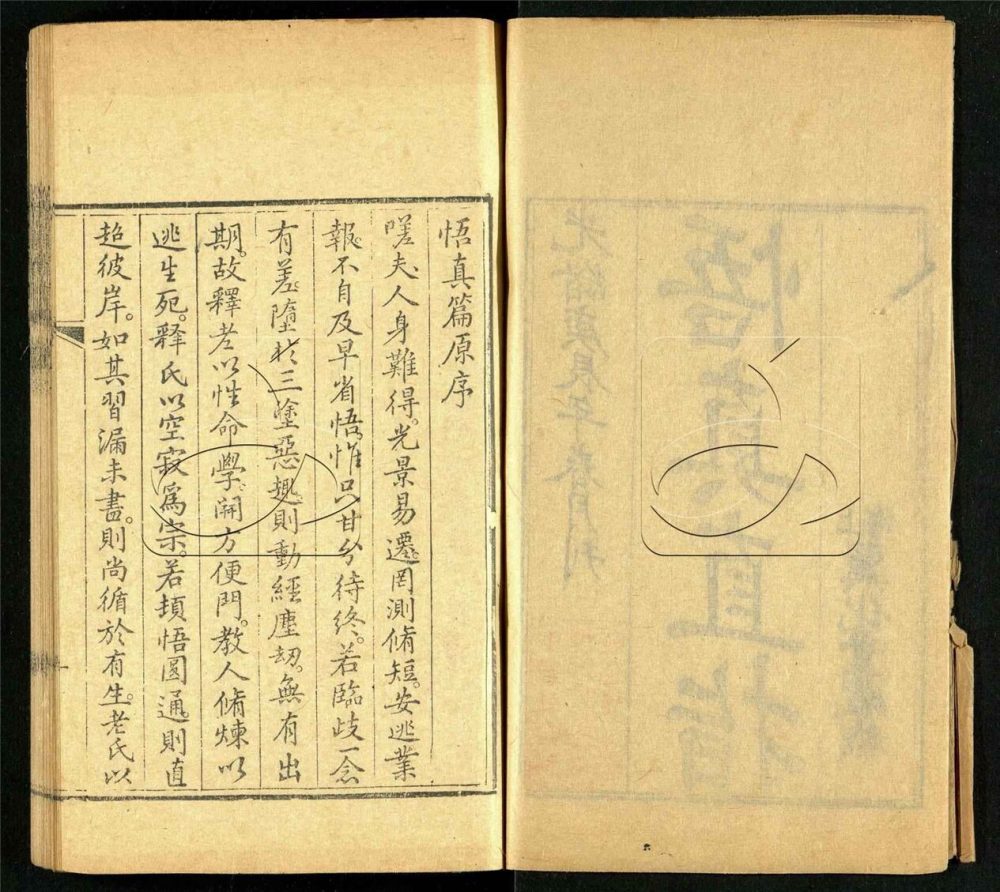 悟真篇原序
嗟夫人身難得。光景易遷。罔測脩短。安逃業
報。不自及早省悟。惟只甘分待終。若臨歧一念
有差。墮於三塗惡趣。則動經塵劫。無有出
期。故釋老以性命學。開方便門。教人脩煉以
逃生死。釋氏以空寂爲宗。若頓悟圓通。則直
超彼岸。如其習漏未盡。則尚循於有生。老氏以